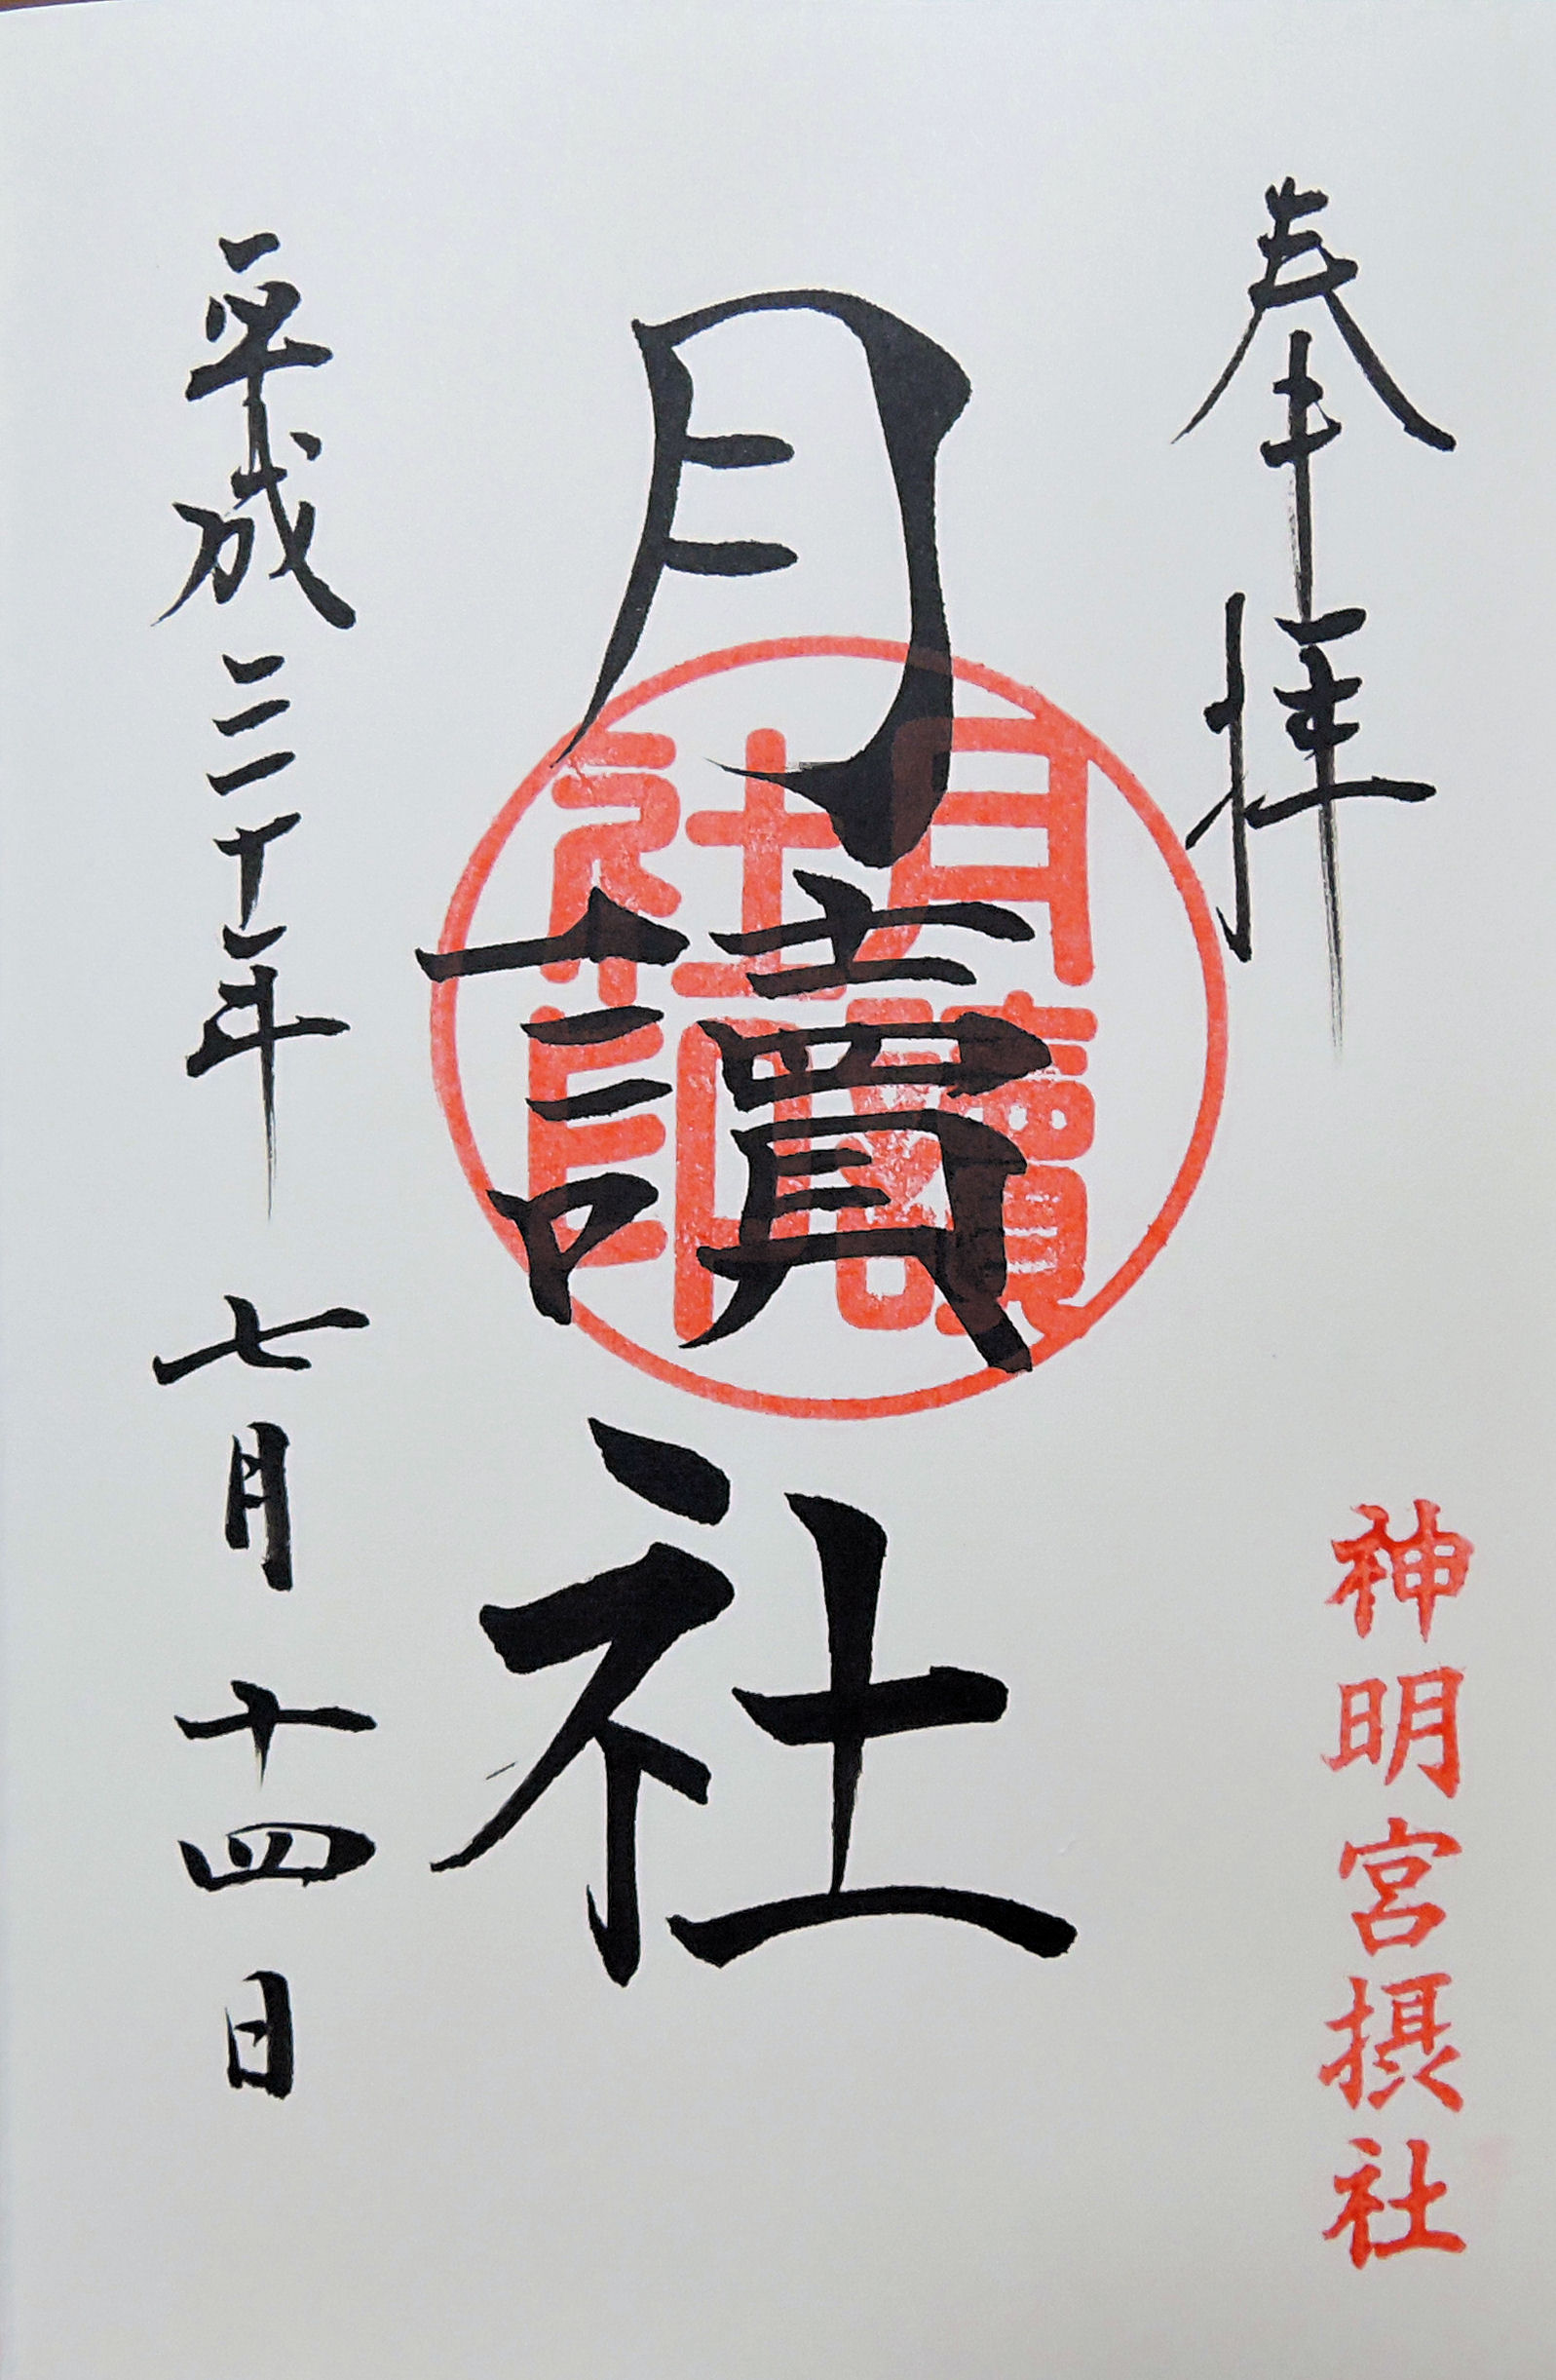 奉拝
神明宮摂社
月讀社
月讀
社印
平成三十年七月十四日